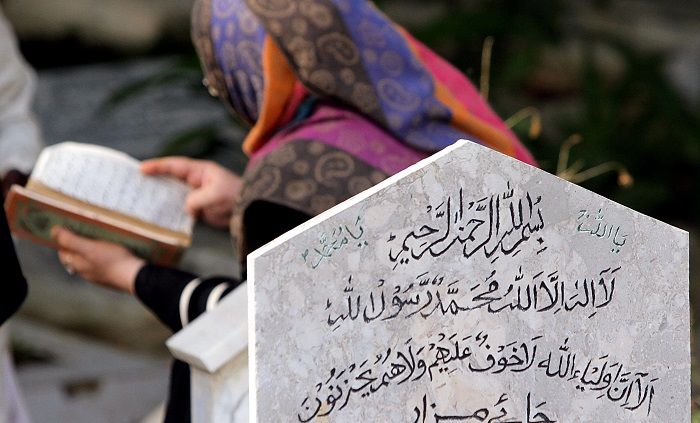 يا الله
بسم الله الرحمن الرحيم
يا محمد
لا اله الا الله محمد رسول الله
الا ان اولياء الله لا خوف عليهم ولا هم يحزنون
جائے مزار